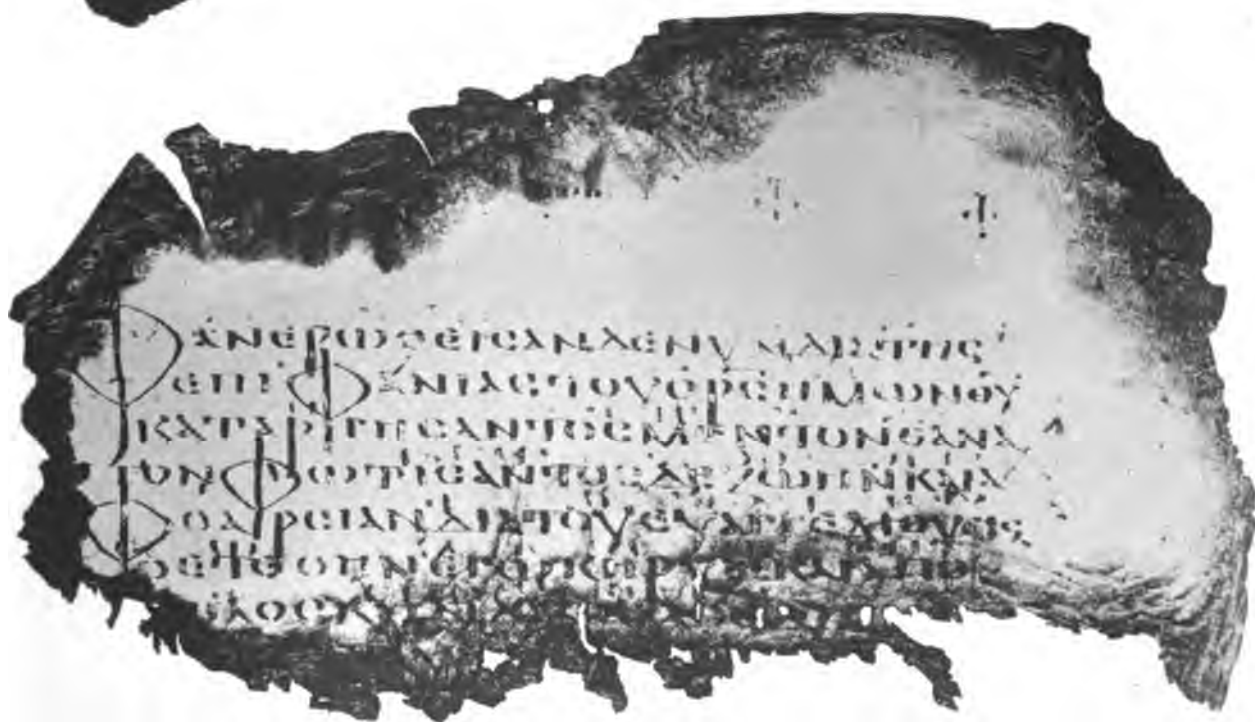 ΦΑΝΕΡΩΘΕΙϹΑΝΔΕΝΥΝΔΙΑΤΗϹ
ΕΠΙΦΑΝΙΑϹΤΟΥϹΡϹΗΜΩΝΘΥ
ΚΑΤΑΡΓΗϹΑΝΤΟϹΜΕΝΤΟΝΘΑΝΑ
ΤΟΝΦΩΤΙϹΑΝΤΟϹΔΕΖΩΗΝΚΑΙΑ
ΦΘΑΡϹΙΑΝΔΙΑΤΟΥΕΥΑΓΓΕΛΙΟΥΕΙϹ
ΟΕΤΕΘΗΝΕΓΩΚΗΡΥΞΚΑΙΑΠΟ